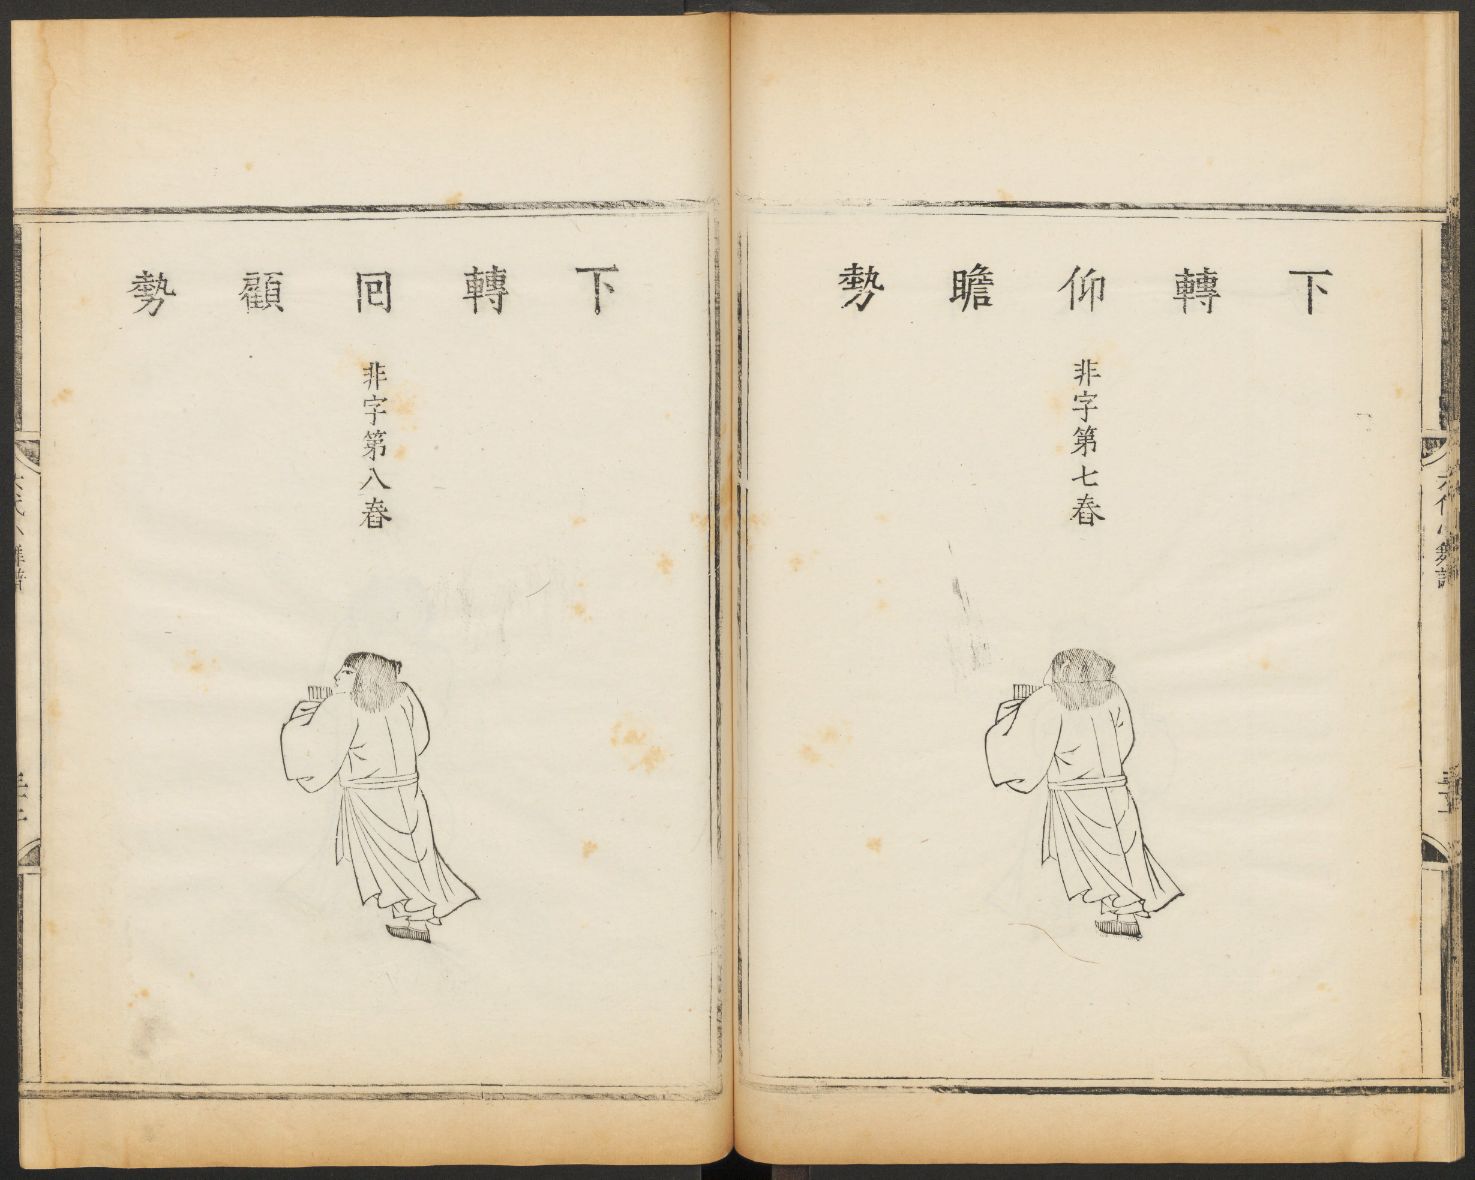 下轉仰瞻勢
非字第七舂
下轉回顧勢
非字第八舂